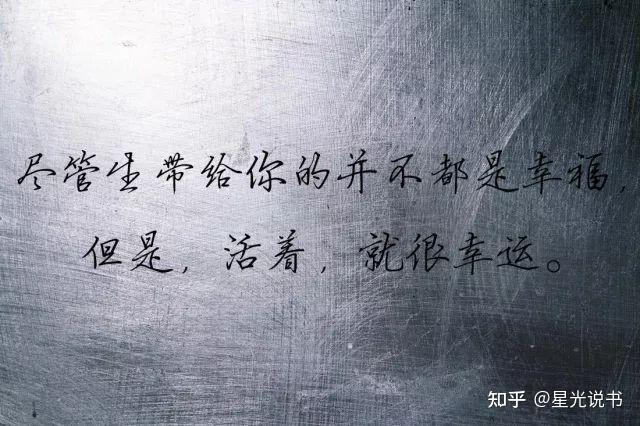 尽管生带给你的并不都是幸福，
但是，活着，就很幸运。
知乎 @星光说书